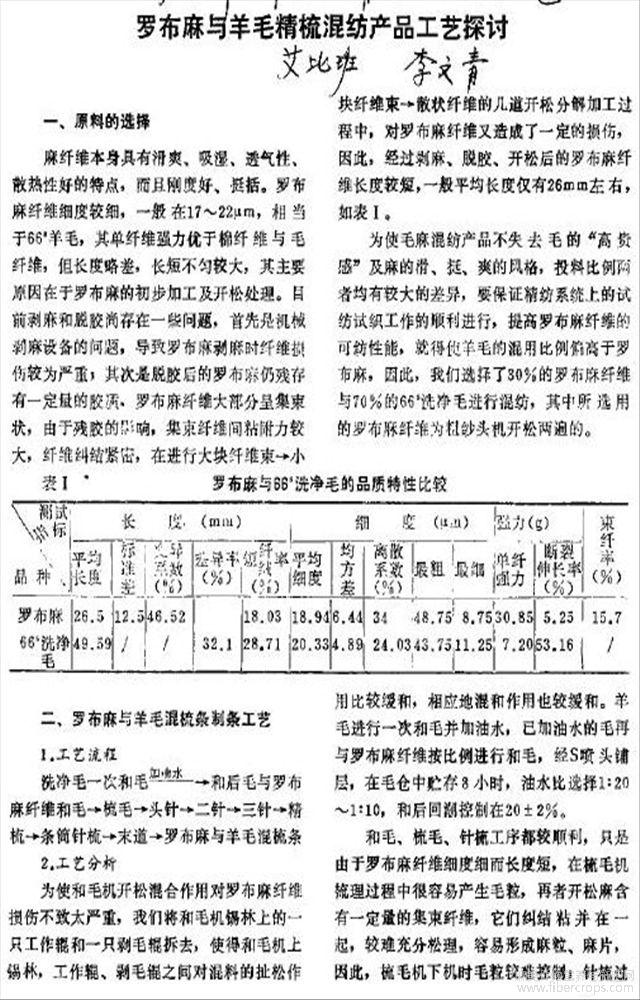 罗布麻与羊毛精梳混纺产品工艺探讨
艾比班 李文青
一、原料的选择
麻纤维本身具有滑爽、吸湿、透气性、
散热性好的特点，而且刚度好、挺括。罗布
麻纤维细度较细，一般在17～22μm，相当
于66ˢ羊毛，其单纤维强力优于棉纤维与毛
纤维，但长度略差，长短不匀较大，其主要
原因在于罗布麻的初步加工及开松处理。目
前剥麻和脱胶尚存在一些问题，首先是机械
剥麻设备的问题，导致罗布麻剥麻时纤维损
伤较为严重；其次是脱胶后的罗布麻仍残存
有一定量的胶质、罗布麻纤维大部分呈集束
状，由于残胶的影响，集束纤维间粘附力较
大，纤维纠结紧密，在进行大块纤维束→小
块纤维束→散状纤维的几道开松分解加工过
程中，对罗布麻纤维又造成了一定的损伤，
因此，经过剥麻、脱胶、开松后的罗布麻纤
维长度较短，一般平均长度仅有26mm左右，
如表Ⅰ。
为使毛麻混纺产品不失去毛的“高贵
感”及麻的滑、挺、爽的风格，投料比例两
者均有较大的差异，要保证精纺系统上的试
纺试织工作的顺利进行，提高罗布麻纤维的
可纺性能，就得使羊毛的混用比例偏高于罗
布麻，因此，我们选择了30%的罗布麻纤维
与70%的66ˢ洗净毛进行混纺，其中所选用
的罗布麻纤维为粗纱头机开松两遍的。
表Ⅰ 罗布麻与66ˢ洗净毛的品质特性比较
测试指标 长度(mm) 细度(μm) 强力(g) 束纤率(%)
品种 平均长度 标准差 变异系数(%) 差异率(%) 短纤率(%) 平均细度 均方差 离散系数(%) 最粗 最细 单纤强力 断裂伸长率(%)
罗布麻 26.5 12.5 46.52 18.03 18.94 6.44 34 48.75 8.75 30.85 5.25 15.7
66ˢ洗净毛 49.59 / / 32.1 28.71 20.33 4.89 24.03 43.75 11.25 7.20 53.16 /
二、罗布麻与羊毛混梳条制条工艺
1.工艺流程
洗净毛一次和毛 加油水→和后毛与罗布
麻纤维和毛→梳毛→头针→二针→三针→精
梳→条筒针梳→末道→罗布麻与羊毛混梳条
2.工艺分析
为使和毛机开松混合作用对罗布麻纤维
损伤不致太严重，我们将和毛机锡林上的一
只工作辊和一只剥毛辊拆去，使得和毛机上
锡林，工作辊、剥毛辊之间对混料的扯松作
用比较缓和，相应地混和作用也较缓和。羊
毛进行一次和毛并加油水，已加油水的毛再
与罗布麻纤维按比例进行和毛，经S喷头铺
层，在毛仓中贮存8小时，油水比选择1:20
～1:10，和后回潮控制在20±2%。
和毛、梳毛、针梳工序都较顺利，只是
由于罗布麻纤维细度细而长度短，在梳毛机
梳理过程中很容易产生毛粒，再者开松麻含
有一定量的集束纤维，它们纠结粘并在一
起，较难充分松理，容易形成麻粒、麻片，
因此，梳毛机下机时毛粒较难控制，针梳过
www.fibercrops.com